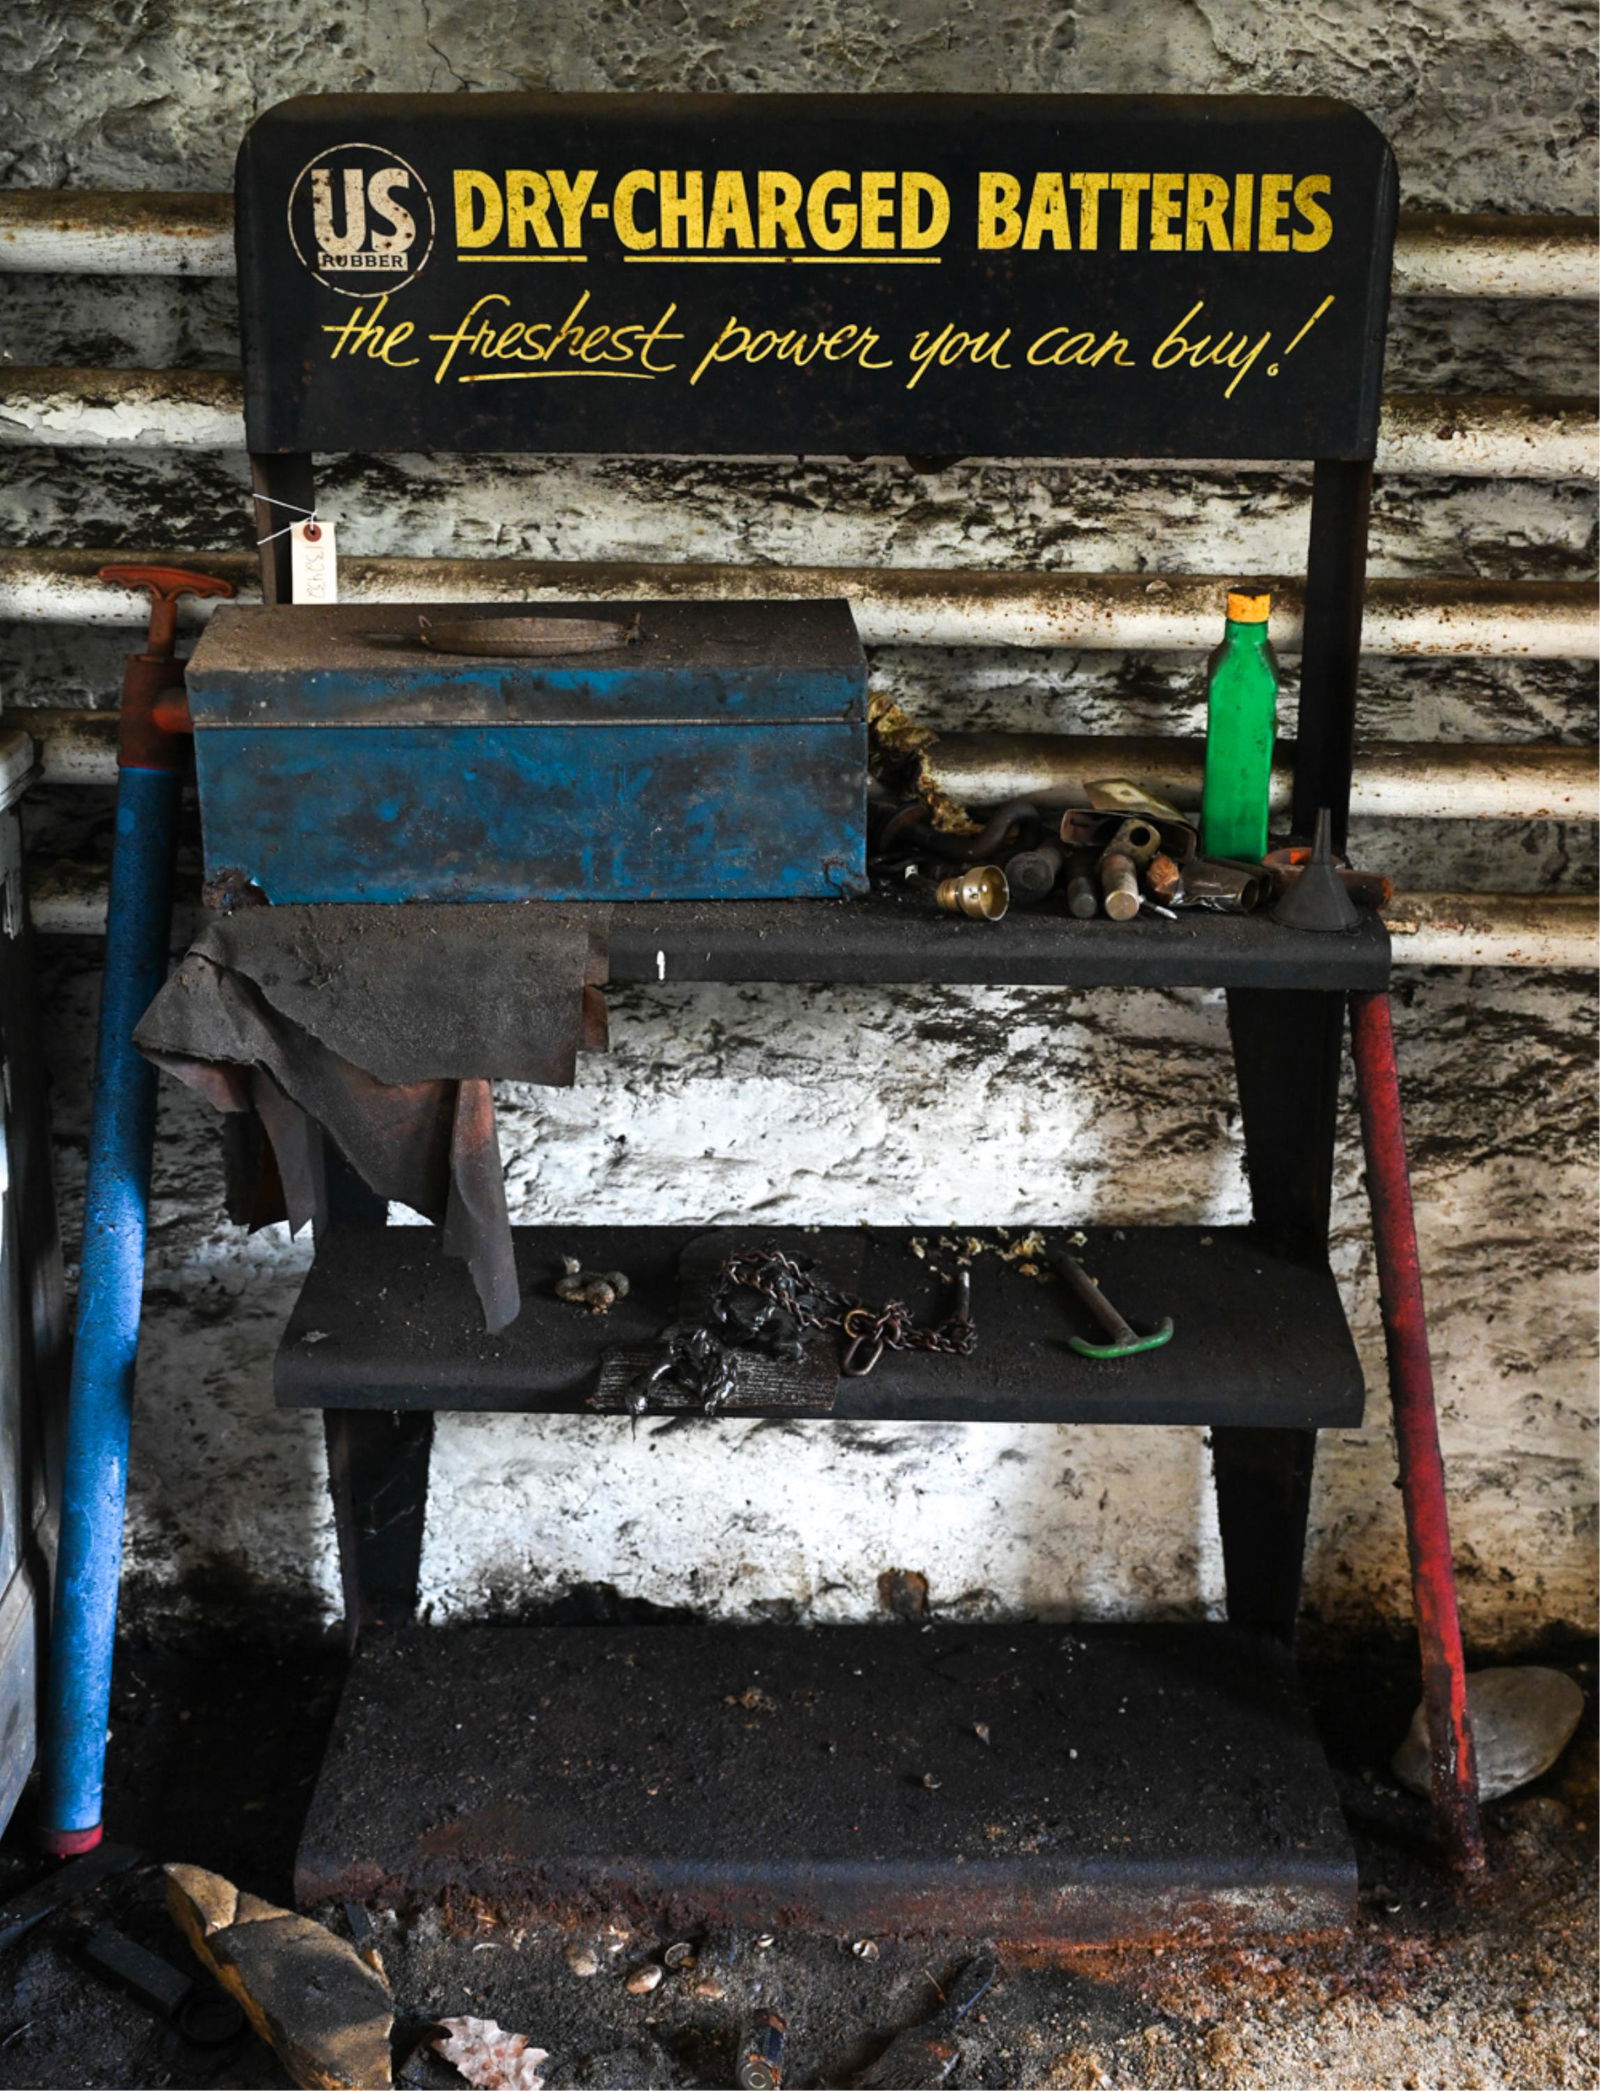 US
RUBBER
DRY-CHARGED BATTERIES
the freshest power you can buy!